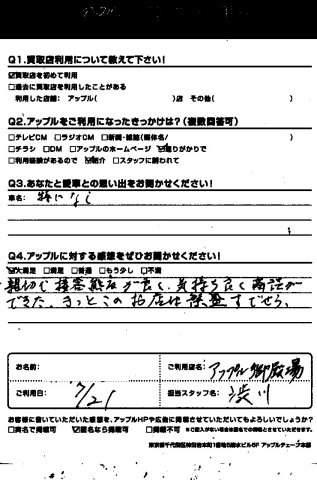 Q1.買取店利用について教えて下さい!
☑買取店を初めて利用
□過去に買取店を利用したことがある
利用した店舗: アップル( )店 その他( )
Q2.アップルをご利用になったきっかけは?(複数回答可)
□テレビCM □ラジオCM □新聞・雑誌(媒体名/ )
□チラシ □DM □アップルのホームページ ☑通りがかりで
□利用経験があるので ☑紹介 □スタッフに誘われて
Q3.あなたと愛車との思い出をお聞かせください!
車名: 特になし
Q4.アップルに対する感想をぜひお聞かせください!
☑大満足 □満足 □普通 □もう少し □不満
親切で接客態度が良く、気持ち良く商談が
できた。きっとこのお店は
お名前:
ご利用店名: アップル御殿場
ご利用日: 7/21
担当スタッフ名: 渋川
お客様に書いていただいた感想を、アップルHPや広告に掲載させていただいてもよろしいでしょうか?
□実名で掲載可 ☑匿名なら掲載可 □掲載不可 ※ご記入がない場合は匿名での掲載とさせていただきます。